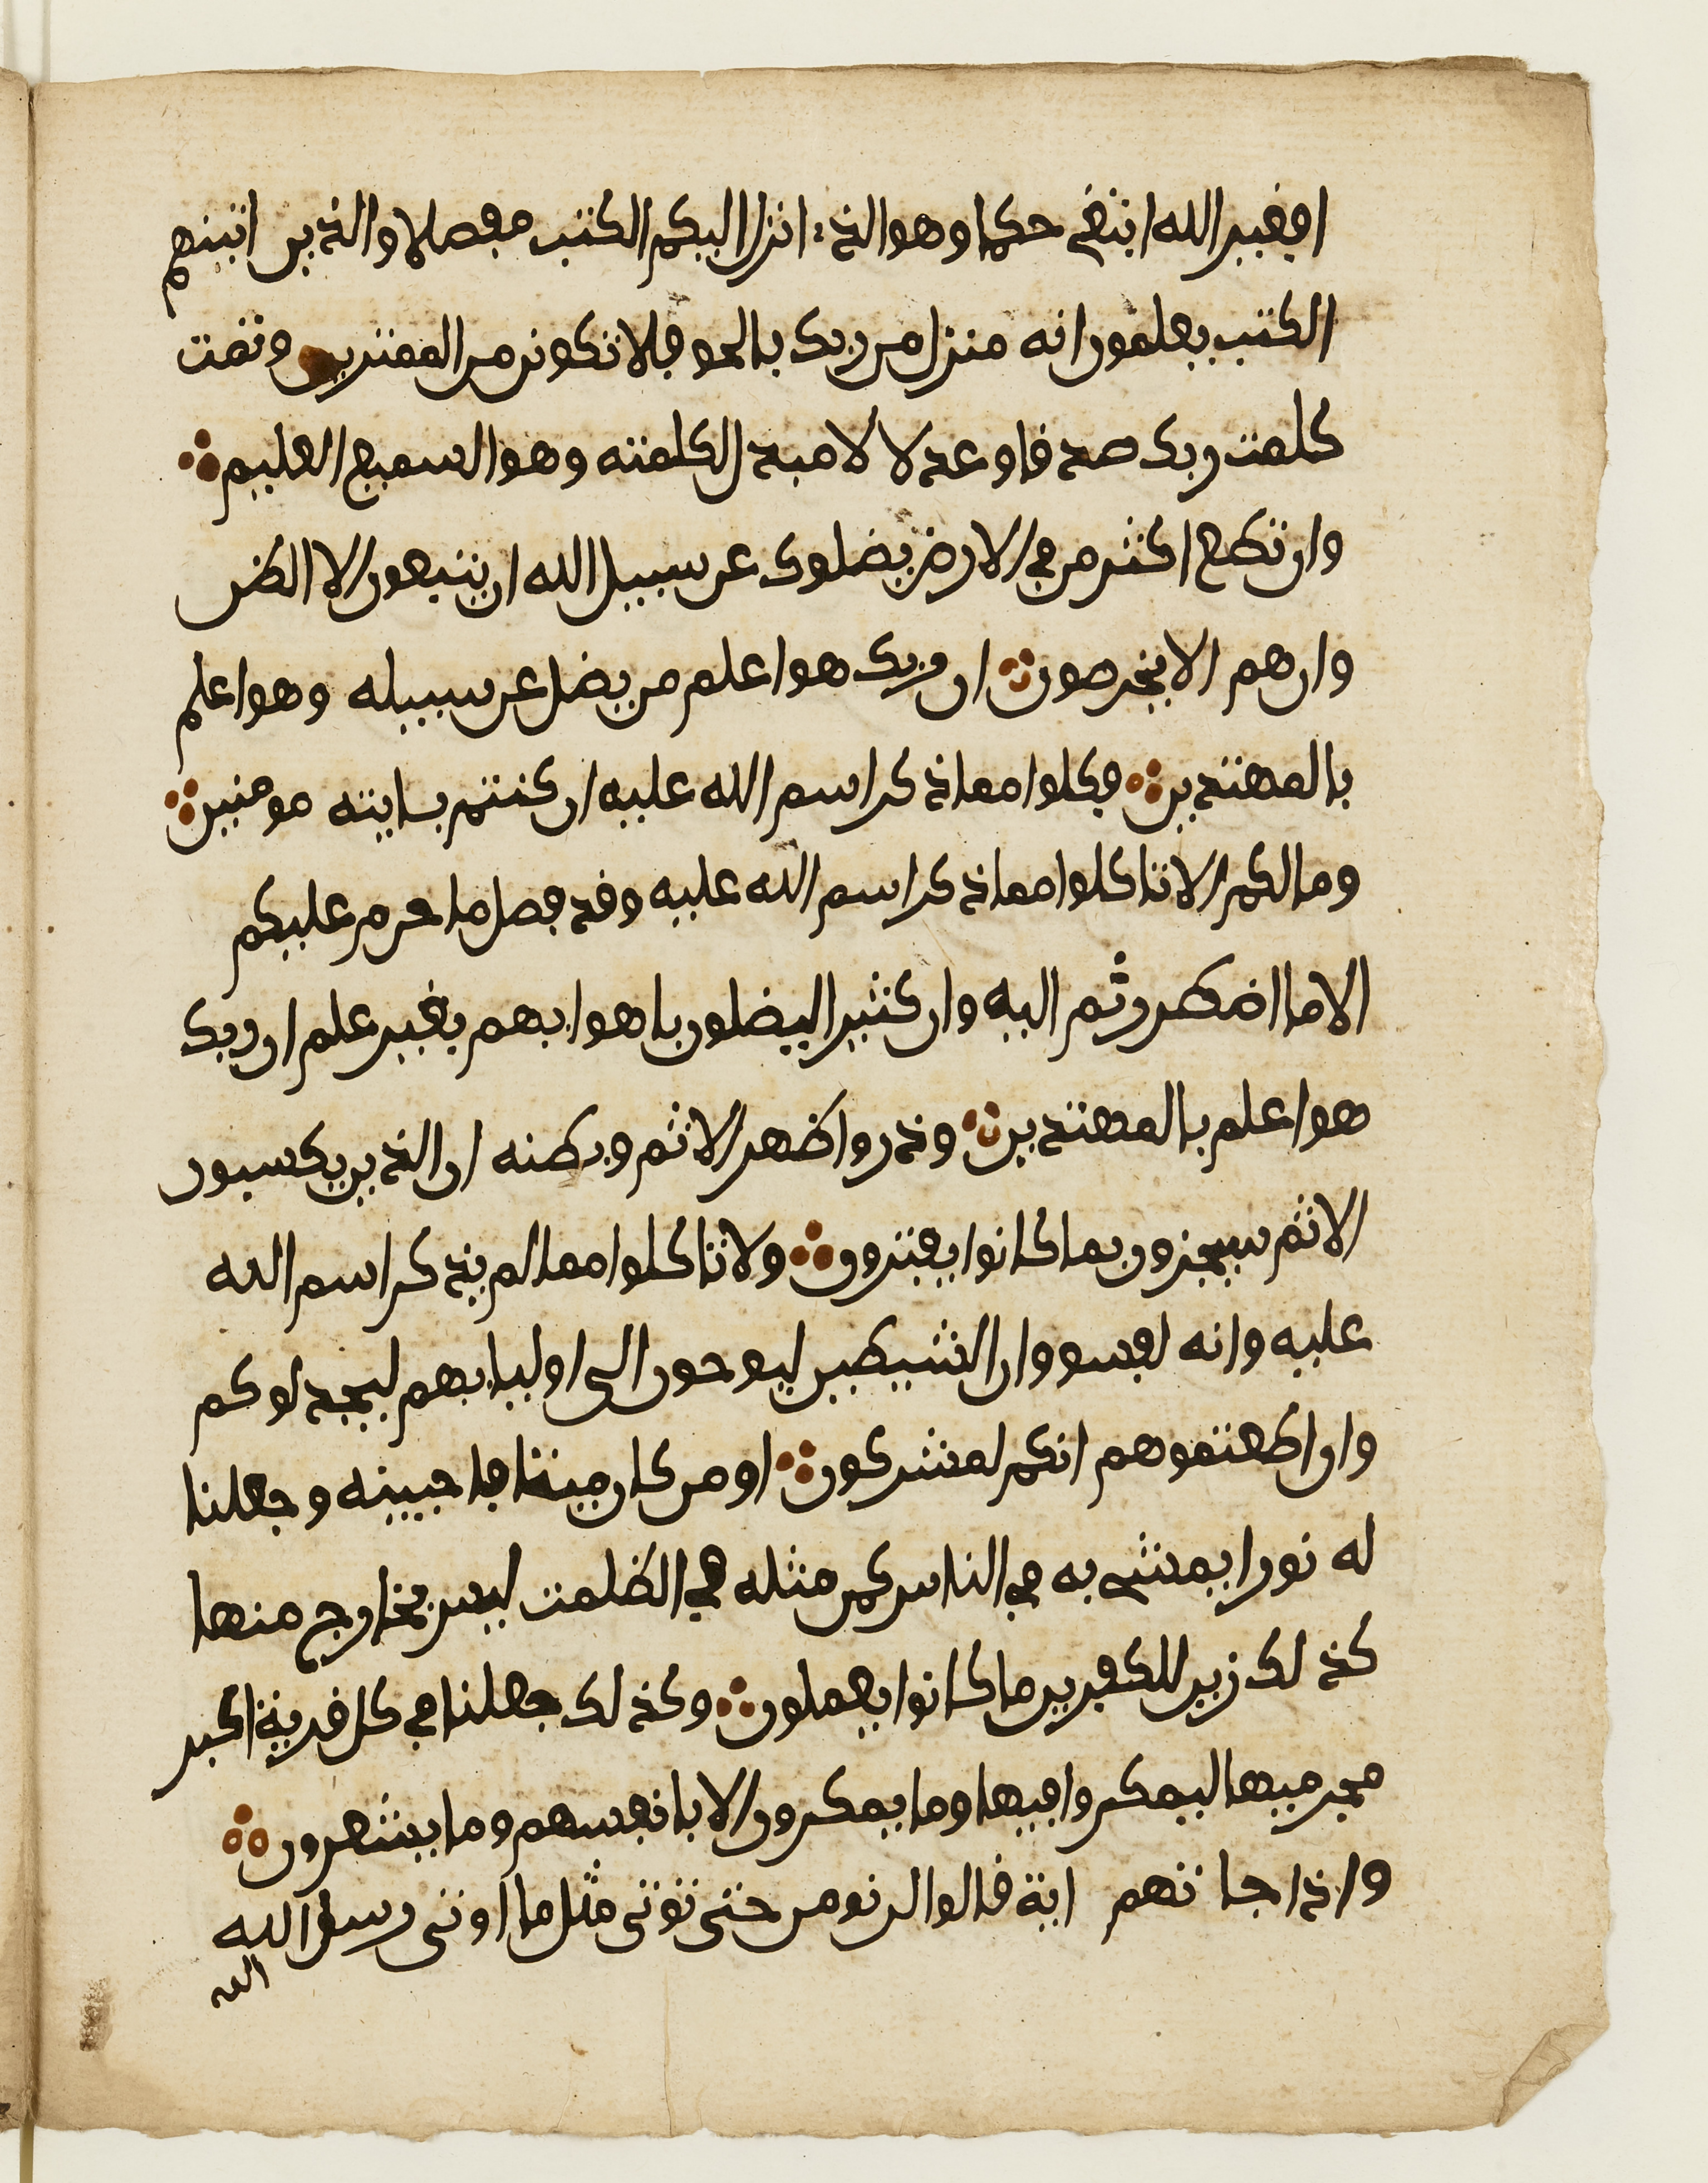 افغير الله ابتغي حكما وهو الذي انزل اليكم الكتب مفصلا والذين اتينهم
الكتب يعلمون انه منزل من ربك بالحق فلا تكونن من الممترين وتمت
كلمت ربك صدقا وعدلا لا مبدل لكلمته وهو السميع العليم
وان تطع اكثر من في الارض يضلوك عن سبيل الله ان يتبعون الا الظن
وان هم الا يخرصون ان ربك هو اعلم من يضل عن سبيله وهو اعلم
بالمهتدين فكلوا مما ذكر اسم الله عليه ان كنتم بايته مومنين
وما لكم الا تاكلوا مما ذكر اسم الله عليه وقد فصل ما حرم عليكم
الا ما اضطررتم اليه وان كثيرا ليضلون باهوايهم بغير علم ان ربك
هو اعلم بالمهتدين وذروا ظهر الاثم وبطنه ان الذين يكسبون
الاثم سيجزون بما كانوا يقترفون ولا تاكلوا مما لم يذكر اسم الله
عليه وانه لفسق وان الشيطين ليوحون الى اوليايهم ليجدلوكم
وان اطعتموهم انكم لمشركون او من كان ميتا فاحيينه وجعلنا
له نورا يمشي به في الناس كمن مثله في الظلمت ليس بخارج منها
كذلك زين للكفرين ما كانوا يعملون وكذلك جعلنا في كل قرية اكبر
مجرميها ليمكروا فيها وما يمكرون الا بانفسهم وما يشعرون
واذا جاتهم اية قالوا لن نومن حتى نوتى مثل ما اوتي رسل الله
الله